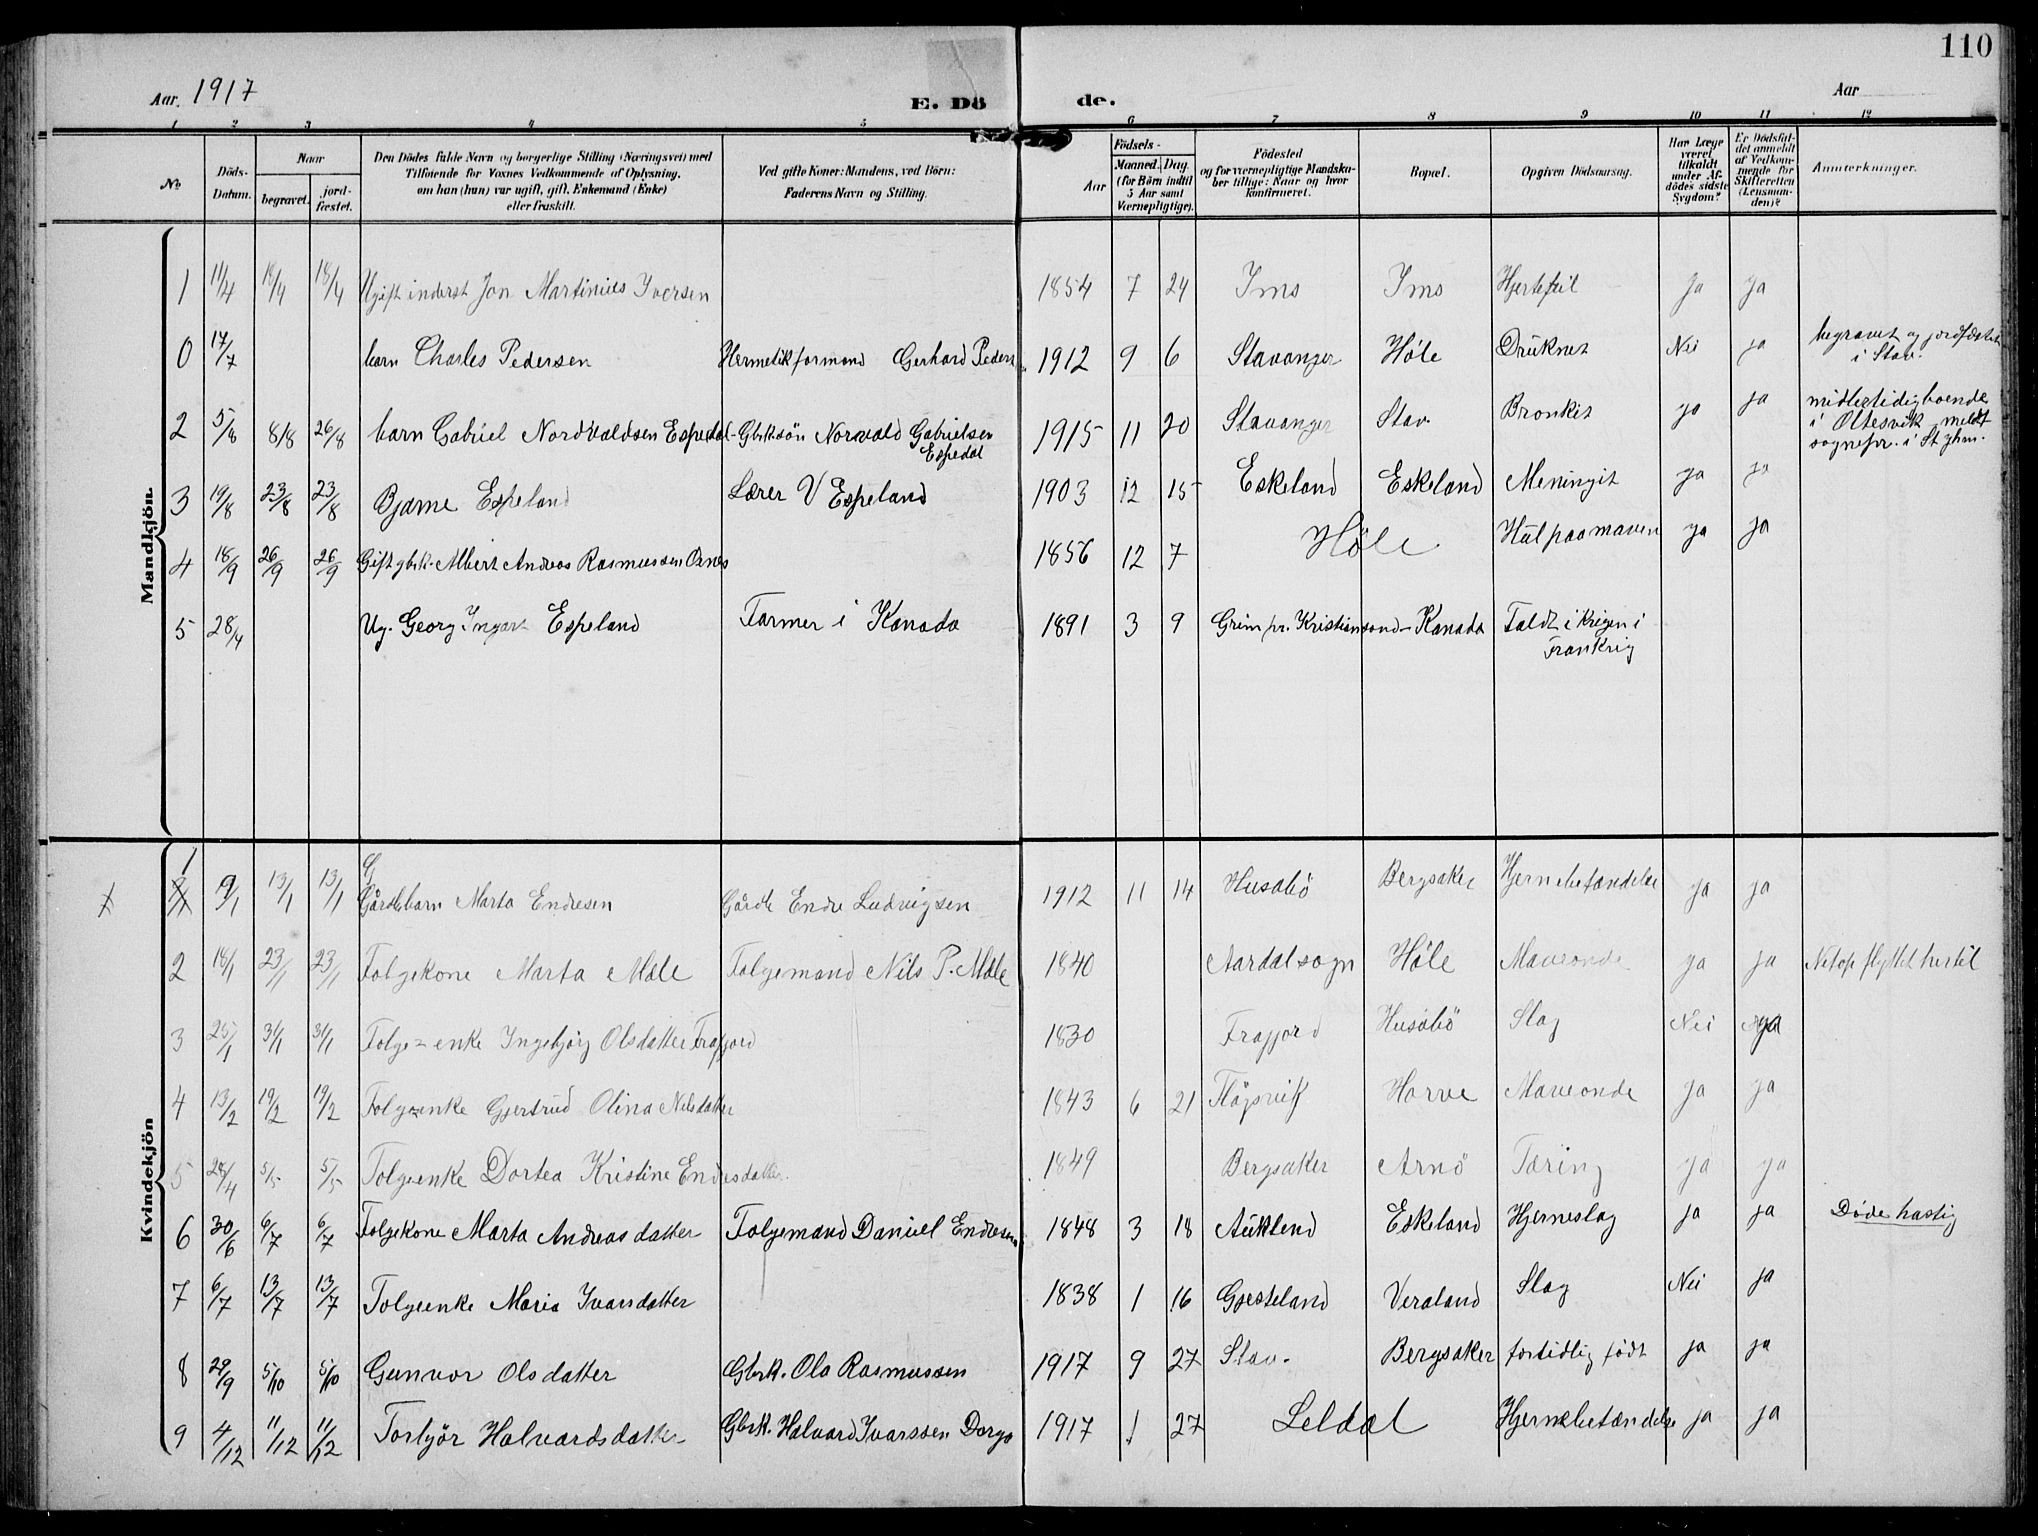 110
Aar. 1917
E. Dö de.
Aar
1 2 3 4 5 6 7 8 9 10 11 12
No
Döds-Datum.
Naar
begravet.
jord-fæstet.
Den Dödes fulde Navn og borgerlige Stilling (Næringsvei) med
Tilföiende for Voxnes Vedkommende af Oplysning,
om han (hun) var ugift, gift, Enkemand (Enke)
eller fraskilt.
Ved gifte Koner: Mandens, ved Börn:
Faderens Navn og Stilling.
Födsels-
Aar
Maaned. Dag.
(for Börn indtil
5 Aar samt
Værnepligtige).
Födested
og for værnepligtige Mandska-
ber tillige: Naar og hvor
konfirmeret.
Bopæl.
Opgiven Dödsaarsag.
Har Læge
været
tilkaldt
under Af-
dödes sidste
Sygdom?
Er Dödsfal-
det anmeldt
af Vedkom-
mende for
Skifteretten
(Lensman-
den)?
Anmerkninger.
Mandkjön.
1 11/4 18/4 18/4 Ugift inderst Jon Martinius Iversen 1854 7 24 Ims Ims Hjertefeil ja ja
0 17/7 barn Charles Pedersen Hermetikformand Gerhard Peders 1912 9 6 Stavanger Höle Druknet Nei ja begravet og jordfæstet
i Stav.
2 5/8 8/8 26/8 barn Gabriel Nordvaldsen Espedal Gbrk.sön Norvald Gabrielsen
Espedal 1915 11 20 Stavanger Stav. Bronkit ja ja midlertidig boende
i Oltesvik meldt
sognepr. i St. Jhm.
3 19/8 23/8 23/8 Bjarne Espeland Lærer V Espeland 1903 12 15 Eskeland Eskeland Meningit ja ja
4 18/9 26/9 26/9 Gift gbrk. Albert Andreas Rasmussen 1856 12 7 Höle Hul paa maven ja ja
5 28/4 Ug. Georg Ingvar Espeland Farmer i Kanada 1891 3 9 Grim pr. Kristiansand Kanada Faldt i krigen i
Frankrig
Kvindekjön
1 9/1 13/1 13/1 Gårdbbarn Marta Endresen Gårdb Endre Ludvigsen 1912 11 14 Husabö Bergsaker Hjernebetændelse ja ja
2 18/1 23/1 23/1 Folgekone Marta Mæle Folgemand Nils P. Mæle 1840 Aardal sogn Höle Maveonde ja ja Netop flyttet hertil
3 25/1 31/1 31/1 Folge-enke Ingebjörg Olsdatter Frafjord 1830 Frafjord Husabö Slag Nei ja
4 13/2 19/2 19/2 Folgeenke Gjertrud Olina Nilsdatter 1843 6 21 Flöysvik Horve Maveonde ja ja
5 28/4 5/5 5/5 Folgeenke Dortea Kristine Endresdatter 1849 Bergsaker Arnö Tæring ja ja
6 30/6 6/7 6/7 Folgekone Marta Andreasdatter Folgemand Daniel Endresen 1848 3 18 Auklend Eskeland Hjerneslag ja ja Döde hastig
7 6/7 13/7 13/7 Folgeenke Maria Ivarsdatter 1838 1 16 Gjesteland Veraland Slag Nei ja
8 29/9 5/10 5/10 Gunvor Olsdatter Gbrk. Ola Rasmussen 1917 9 27 Stav. Bergsaker fortidlig födt ja ja
9 4/12 11/12 11/12 Torbjör Halvardsdatter Gbrk. Halvard Ivarssen Dorga 1917 1 27 Leldal Hjernebetændelse ja ja